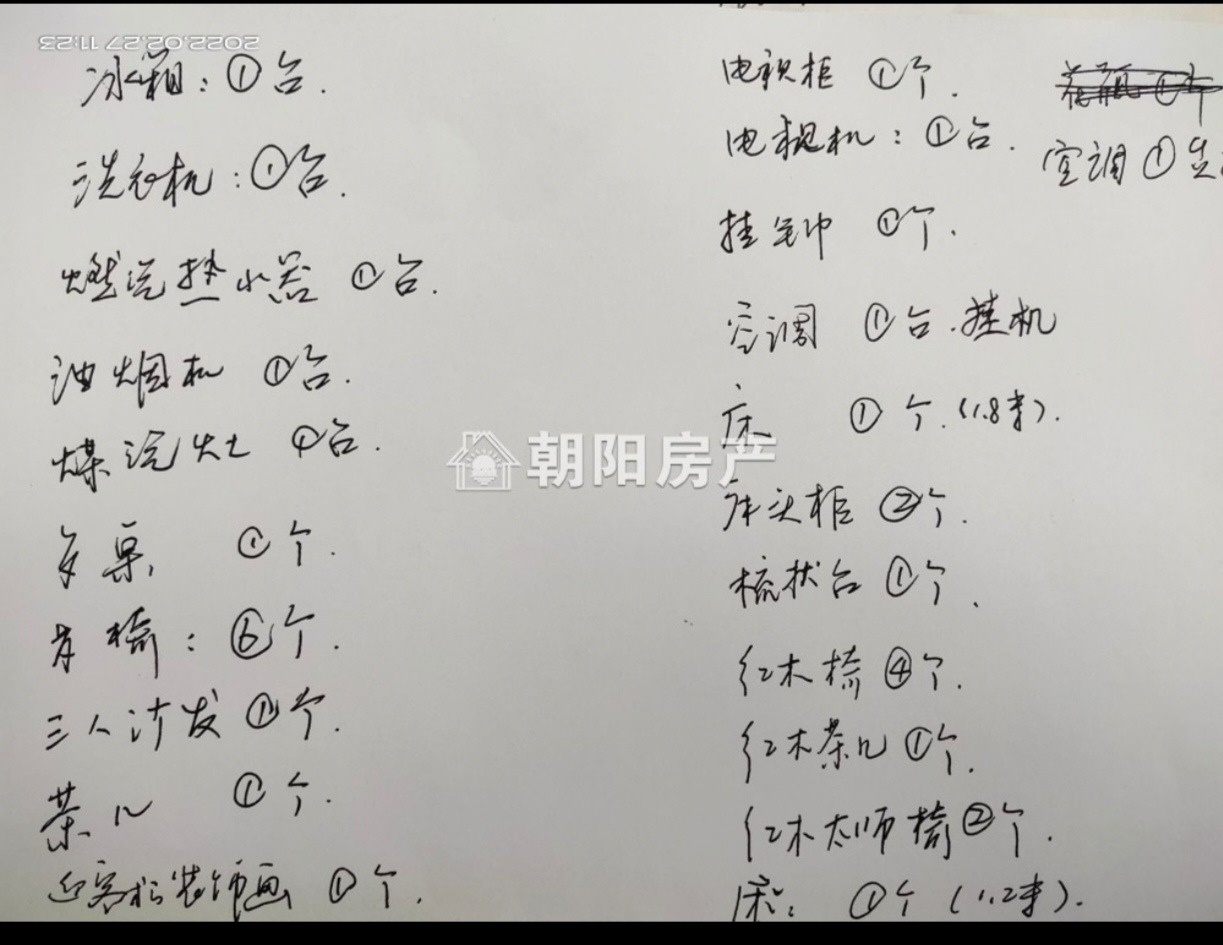 2022.02.27 11:23
冰箱：①台.
洗衣机：①台.
燃汽热水器 ①台.
油烟机 ①台.
煤汽灶 ①台.
①个.
椅：⑥个.
三人沙发 ①个.
茶几 ①个.
迎客松装饰画 ①个.
电视柜 ①个.
电视机：①台.
空调①
挂钟 ①个.
空调 ①台.挂机
床 ①个.(1.8米).
床头柜 ②个.
梳状台 ①个.
红木椅 ④个.
红木茶几 ①个.
红木太师椅 ②个.
床：①个 (1.2米).
朝阳房产